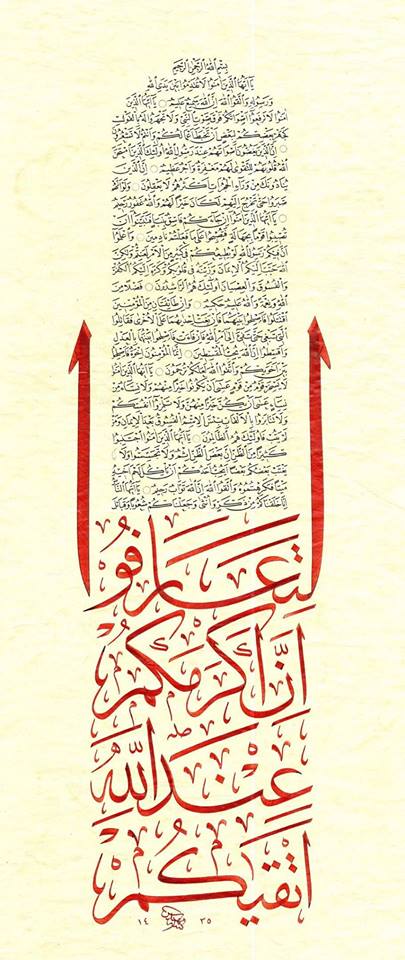 بسم الله الرحمن الرحيم
يا أيها الذين آمنوا لا تقدموا بين يدي الله
ورسوله واتقوا الله إن الله سميع عليم ○ يا أيها الذين
آمنوا لا ترفعوا أصواتكم فوق صوت النبي ولا تجهروا له بالقول
كجهر بعضكم لبعض أن تحبط أعمالكم وأنتم لا تشعرون
○ إن الذين يغضون أصواتهم عند رسول الله أولئك الذين امتحن
الله قلوبهم للتقوى لهم مغفرة وأجر عظيم ○ إن الذين
ينادونك من وراء الحجرات أكثرهم لا يعقلون ○ ولو أنهم
صبروا حتى تخرج إليهم لكان خيرا لهم والله غفور رحيم
○ يا أيها الذين آمنوا إن جاءكم فاسق بنبإ فتبينوا أن
تصيبوا قوما بجهالة فتصبحوا على ما فعلتم نادمين ○ واعلموا
أن فيكم رسول الله لو يطيعكم في كثير من الأمر لعنتم ولكن
الله حبب إليكم الإيمان وزينه في قلوبكم وكره إليكم الكفر
والفسوق والعصيان أولئك هم الراشدون ○ فضلا من
الله ونعمة والله عليم حكيم ○ وإن طائفتان من المؤمنين
اقتتلوا فأصلحوا بينهما فإن بغت إحداهما على الأخرى فقاتلوا
التي تبغي حتى تفيء إلى أمر الله فإن فاءت فأصلحوا بينهما بالعدل
وأقسطوا إن الله يحب المقسطين ○ إنما المؤمنون إخوة فأصلحوا
بين أخويكم واتقوا الله لعلكم ترحمون ○ يا أيها الذين آمنوا
لا يسخر قوم من قوم عسى أن يكونوا خيرا منهم ولا نساء من
نساء عسى أن يكن خيرا منهن ولا تلمزوا أنفسكم
ولا تنابزوا بالألقاب بئس الاسم الفسوق بعد الإيمان ومن
لم يتب فأولئك هم الظالمون ○ يا أيها الذين آمنوا اجتنبوا
كثيرا من الظن إن بعض الظن إثم ولا تجسسوا ولا
يغتب بعضكم بعضا أيحب أحدكم أن يأكل لحم أخيه
ميتا فكرهتموه واتقوا الله إن الله تواب رحيم ○ يا أيها الناس
إنا خلقناكم من ذكر وأنثى وجعلناكم شعوبا وقبائل
لِتَعَارَفُوا
إِنَّ أَكْرَمَكُمْ
عِنْدَ اللَّهِ ۖ
أَتْقَيكُمْ
١٤ ٣٥